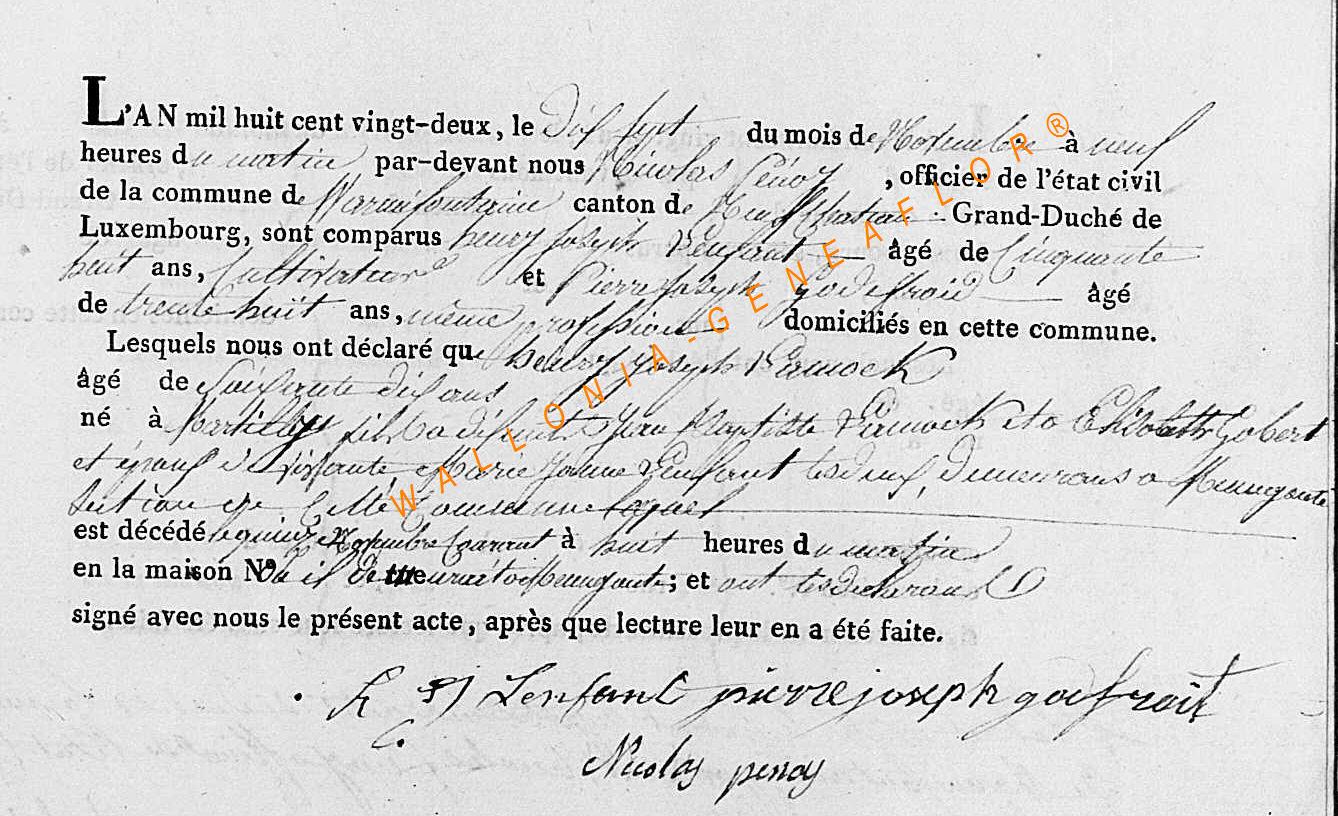 L'AN mil huit cent vingt-deux, le Dix sept du mois de Novembre à neuf
heures du matin par-devant nous Nicolas Penoy, officier de l'état civil
de la commune de Warmifontaine canton de Neufchateau Grand-Duché de
Luxembourg, sont comparus henry Joseph Lenfant âgé de Cinquante
huit ans, Cultivateur et Pierre Joseph Godefroid âgé
de trente huit ans, même profession domiciliés en cette commune.
Lesquels nous ont déclaré que henry Joseph
âgé de Soixante dix ans
né à Martilly fils a défunts Jean Baptiste et a Elisabeth Gobert
et époux de Marie Jeanne Lenfant les deux demeurans a
Section de Cette Commune lequel
est décédé le quinze Novembre Courant à huit heures du matin
en la maison Nº où il demeurait a ; et ont les déclarans
signé avec nous le présent acte, après que lecture leur en a été faite.
h j Lenfant pierre joseph gofroit
Nicolas penoy
WALLONIA-GENEAFLOR®